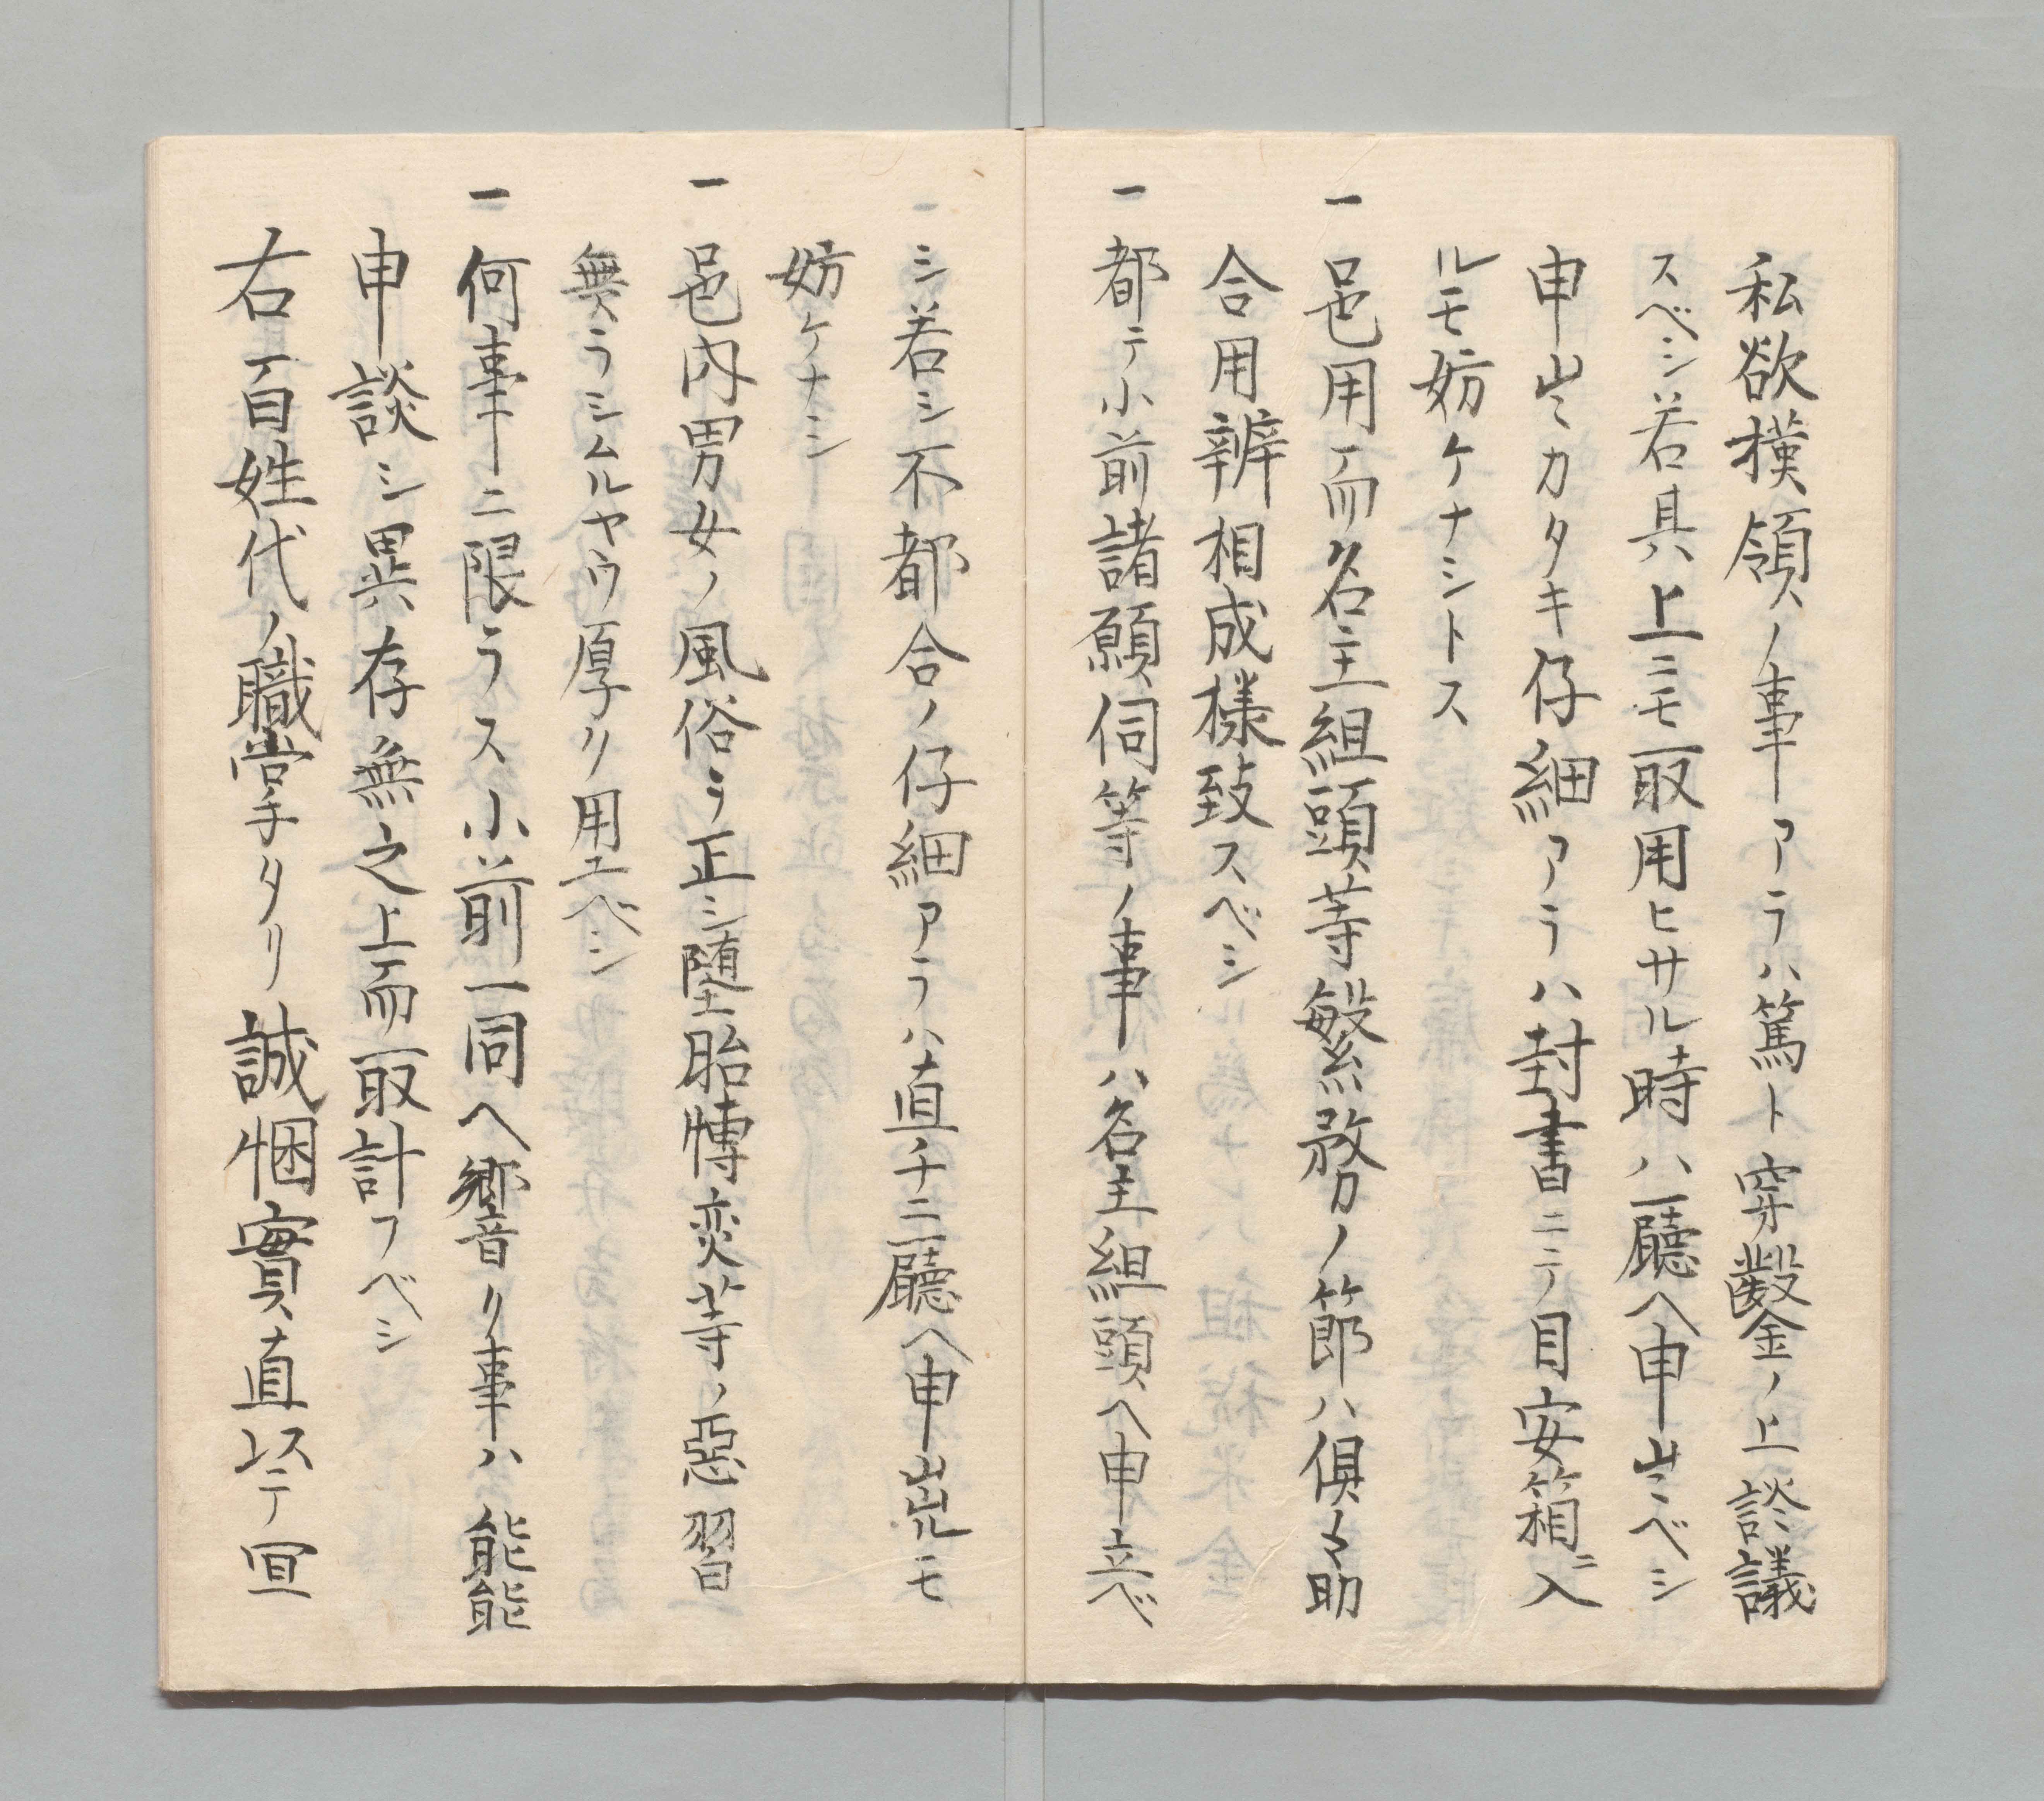 私欲横領ノ事アラハ篤ト穿鑿ノ上談議
スベシ若具上ニモ取用ヒサル時ハ廳ヘ申出ベシ
申出カタキ仔細アラハ封書ニテ目安箱ニ入
ルモ妨ケナシトス
一 邑用ニ而名主組頭等繁務ノ節ハ倶々助
合用辨相成様致スベシ
一 都テ小前諸願伺等ノ事ハ名主組頭ヘ申立ベ
シ若シ不都合ノ仔細アラハ直チニ廳ヘ申出ルモ
妨ケナシ
一 邑内男女ノ風俗ヲ正シ堕胎慱奕等ノ惡習
無ラシムルヤウ厚ク用エベシ
一 何事ニ限ラス小前一同ヘ響ク事ハ能能
申談シ異存無之上ニ而取計フベシ
右百姓代ノ職掌タリ誠悃實直ニシテ宜